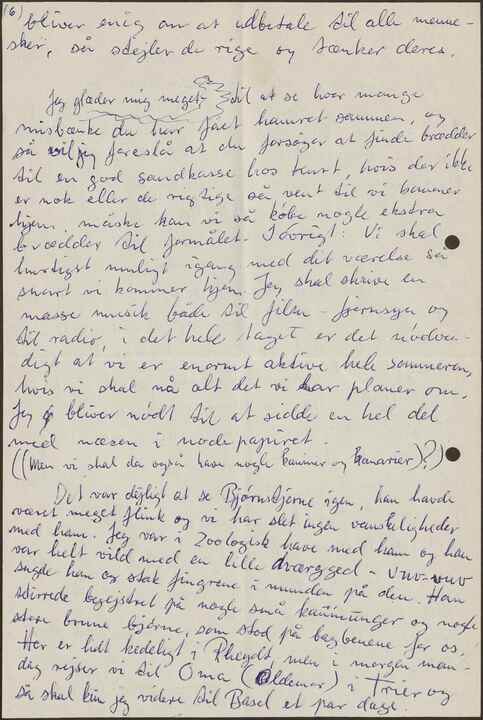 (6) bliver enig om at udbetale til alle menne-
sker, så stejler de rige og tænker deres.
Jeg glæder mig meget til at se hvor mange
misbænke du har fået hamret sammen, og
så vil jeg foreslå at du forsøger at finde brædder
til en god sandkasse hos tant, hvis der ikke
er nok eller de rigtige så vent til vi kommer
hjem, måske kan vi så købe nogle ekstra
brædder til formålet. Iøvrigt: Vi skal
hurtigst muligt igang med det værelse så
snart vi kommer hjem. Jeg skal skrive en
masse musik både til film - fjernsyn og
til radio, i det hele taget er det nødven-
digt at vi er enormt aktive hele sommeren,
hvis vi skal nå alt det vi har planer om.
Jeg bliver nødt til at sidde en hel del
med næsen i nodepapiret.
((Men vi skal da også have nogle Kaniner og Kanarier)?)
Det var dejligt at se Bjørnstjerne igen, han havde
været meget flink og vi har slet ingen vanskeligheder
med ham. Jeg var i Zoologisk have med ham og han
var helt vild med en lille dværgged - vuv-vuv
sagde han og stak fingrene i munden på den. Han
stirrede begejstret på nogle små kaniunger og nogle
store brune bjørne, som stod på bagbenene for os.
Her er helt kedeligt i Rheydt, men i morgen man-
dag rejser vi til Oma (Oldemor) i Trier og
så skal kun jeg videre til Basel et par dage.